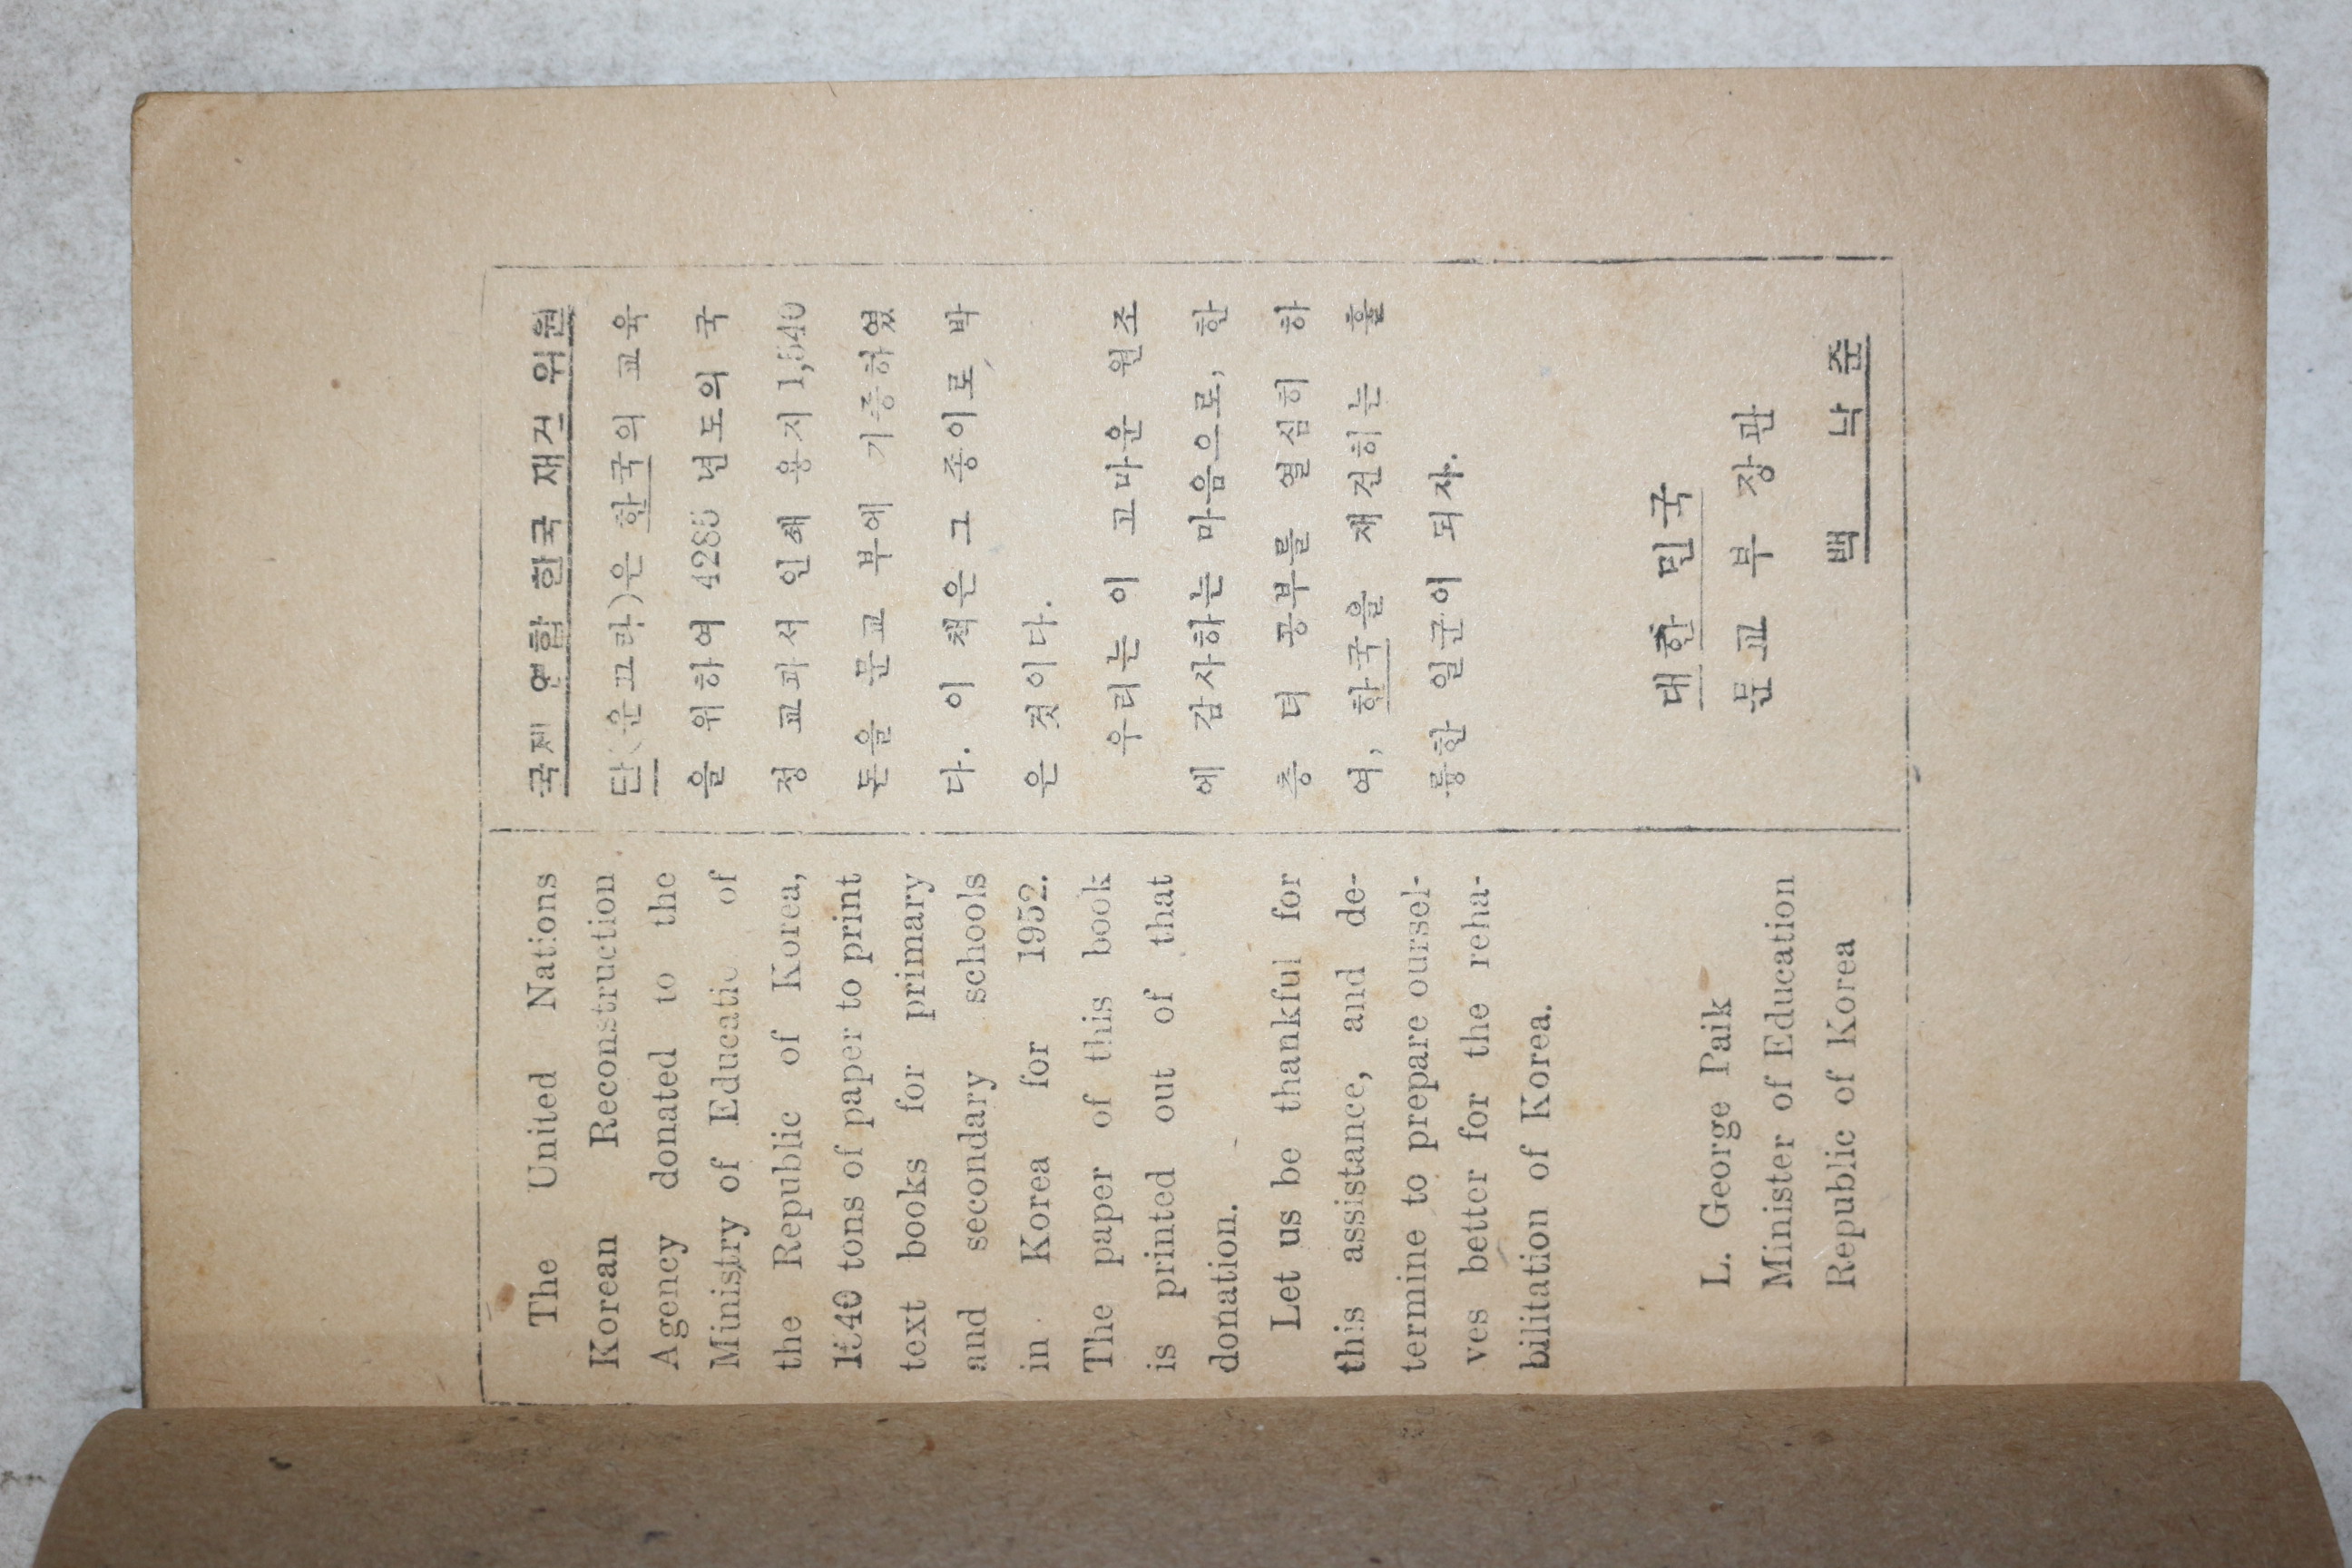 The United Nations
Korean Reconstruction
Agency donated to the
Ministry of Educatic of
the Republic of Korea,
1540 tons of paper to print
text books for primary
and secondary schools
in Korea for 1952.
The paper of this book
is printed out of that
donation.
Let us be thankful for
this assistance, and de-
termine to prepare oursel-
ves better for the reha-
bilitation of Korea.
L. George Paik
Minister of Education
Republic of Korea
국제 연합 한국 재건 위원
단(운끄라)은 한국의 교육
을 위하여 4285 년도의 국
정 교과서 인쇄 용지 1,540
돈을 문교 부에 기증하였
다. 이 책은 그 종이로 박
은 것이다.
우리는 이 고마운 원조
에 감사하는 마음으로, 한
층 더 공부를 열심히 하
여, 한국을 재건하는 훌
륭한 일군이 되자.
대한 민국
문교 부 장관
백 낙 준